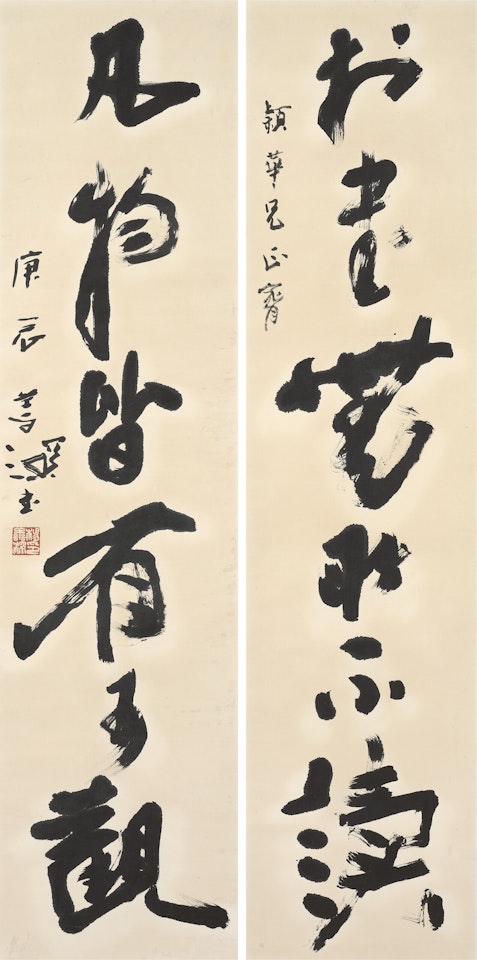 於書無所不讀
穎華兄正
凡物皆有可觀
庚辰 溪書